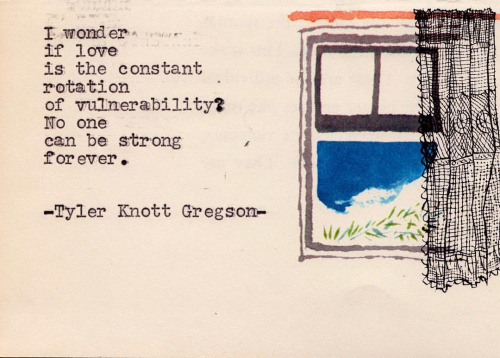 I wonder
if love
is the constant
rotation
of vulnerability?
No one
can be strong
forever.
-Tyler Knott Gregson-